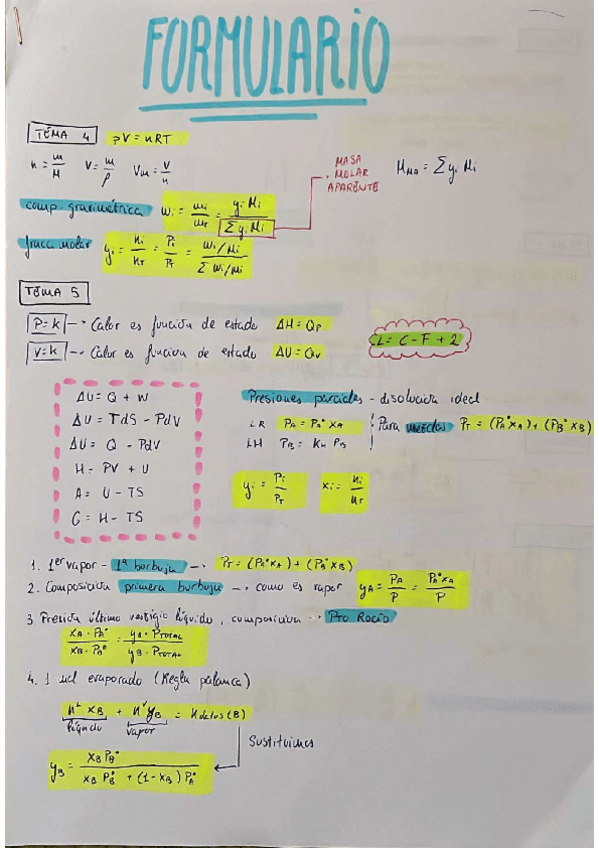 FORMULARIO
TEMA 4 PV = nRT
n = m/M V = m/ρ Vm = V/n
MASA MOLAR APARENTE M_MA = Σ yi Mi
comp. gravimétrica Wi = mi/mT = yi Mi / Σ yi Mi
fracc molar yi = ni/nT = Pi/PT = Wi/Mi / Σ Wi/Mi
TEMA 5
P=K → Calor es función de estado ΔH = Qp
V=K → Calor es funcion de estado ΔU = Qv
L = C - F + 2
ΔU = Q + W
ΔU = TdS - PdV
ΔU = Q - PdV
H = PV + U
A = U - TS
G = H - TS
Presiones parciales - disolución ideal
LR PA = PA° XA
LH PB = KH PB
Para mezclas PT = (PA° XA) + (PB° XB)
yi = Pi/PT xi = ni/nT
1. 1er vapor - 1ª burbuja → PT = (PA° XA) + (PB° XB)
2. Composición primera burbuja → como es vapor yA = PA/P = PA° XA/P
3. Presión último vestigio líquido, composición → Pto Rocío
XA · PA° / XB · PB° = yA · PTOTAL / yB · PTOTAL
4. 1 mol evaporado (Regla palanca)
n^L XB + n^V yB = n datos (B)
líquido vapor
Sustituimos
yB = XB PB° / XB PB° + (1 - XB) PA°